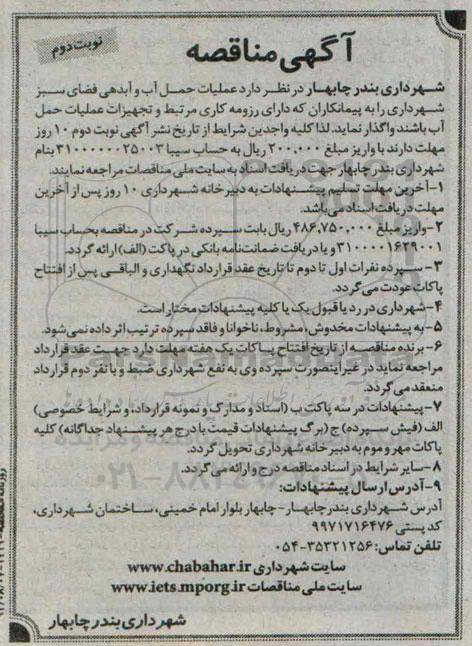 آگهی مناقصه
نوبت دوم
شهرداری بندر چابهار در نظر دارد عملیات حمل آب و آبدهی فضای سبز
شهرداری را به پیمانکاران که دارای رزومه کاری مرتبط و تجهیزات عملیات حمل
آب باشند واگذار نماید. لذا کلیه واجدین شرایط از تاریخ نشر آگهی نوبت دوم ۱۰ روز
مهلت دارند با واریز مبلغ ۲۰۰،۰۰۰ ریال به حساب سیبا ۳۱۰۰۰۰۰۰۲۵۰۰۳ بنام
شهرداری بندر چابهار جهت دریافت اسناد به سایت ملی مناقصات مراجعه نمایند.
۱-آخرین مهلت تسلیم پیشنهادات به دبیرخانه شهرداری ۱۰ روز پس از آخرین
مهلت دریافت اسناد می‌باشد.
۲-واریز مبلغ ۴۸۶،۷۵۰،۰۰۰ ریال بابت سپرده شرکت در مناقصه بحساب سیبا
۳۱۰۰۰۰۱۶۲۹۰۰۱ و یا دریافت ضمانت‌نامه بانکی در پاکت (الف) ارائه گردد.
۳- سپرده نفرات اول تا دوم تا تاریخ عقد قرارداد نگهداری و الباقی پس از افتتاح
پاکات عودت می‌گردد.
۴-شهرداری در رد یا قبول یک یا کلیه پیشنهادات مختار است.
۵- به پیشنهادات مخدوش، مشروط، ناخوانا و فاقد سپرده ترتیب اثر داده نمی‌شود.
۶- برنده مناقصه از تاریخ افتتاح پاکات یک هفته مهلت دارد جهت عقد قرارداد
مراجعه نماید در غیر اینصورت سپرده وی به نفع شهرداری ضبط و با نفر دوم قرارداد
منعقد می‌گردد.
۷-پیشنهادات در سه پاکت ب (اسناد و مدارک و نمونه قرارداد، و شرایط خصوصی)
الف (فیش سپرده) ج (برگ پیشنهادات قیمت با درج هر پیشنهاد جداگانه) کلیه
پاکات مهر و موم به دبیرخانه شهرداری تحویل گردد.
۸-سایر شرایط در اسناد مناقصه درج و ارائه می‌گردد.
۹-آدرس ارسال پیشنهادات:
آدرس شهرداری بندر چابهار-چابهار بلوار امام خمینی، ساختمان شهرداری،
کد پستی ۹۹۷۱۷۱۶۴۷۶
تلفن تماس: ۳۵۳۲۱۲۵۶-۰۵۴
سایت شهرداری www.chabahar.ir
سایت ملی مناقصات www.iets.mporg.ir
شهرداری بندر چابهار